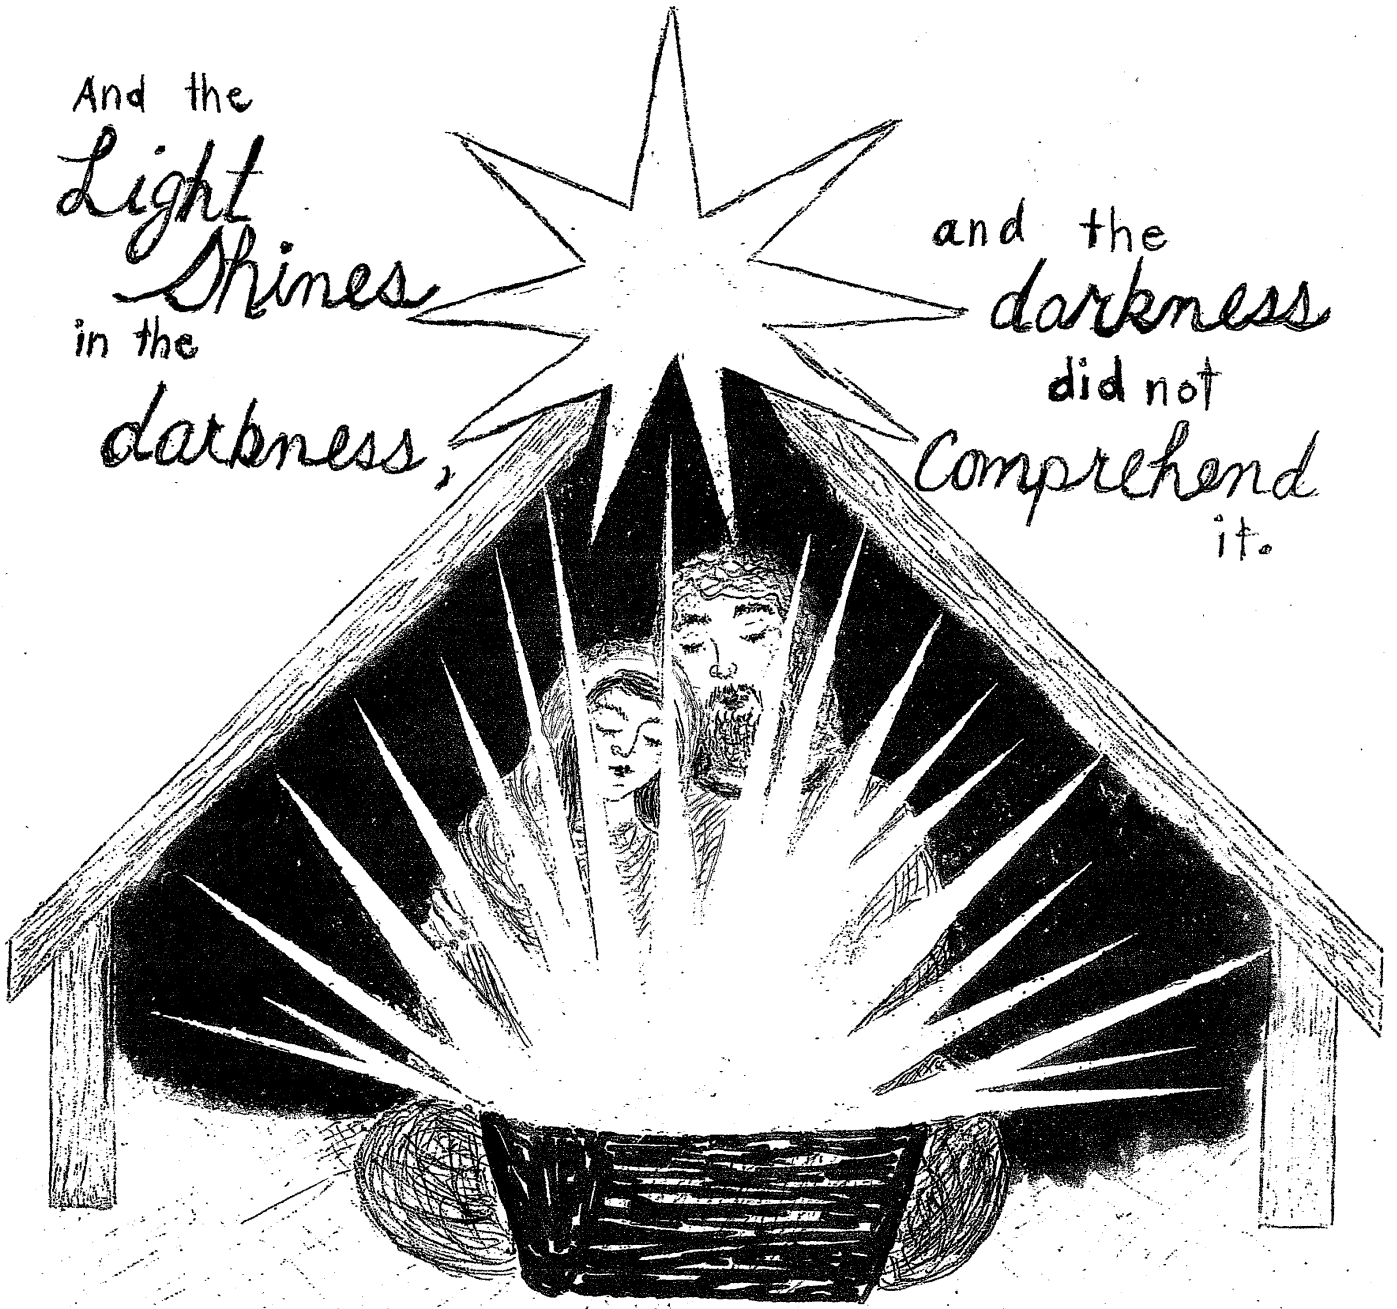 And the
Light
Shines
in the
darkness,
and the
darkness
did not
Comprehend
it.